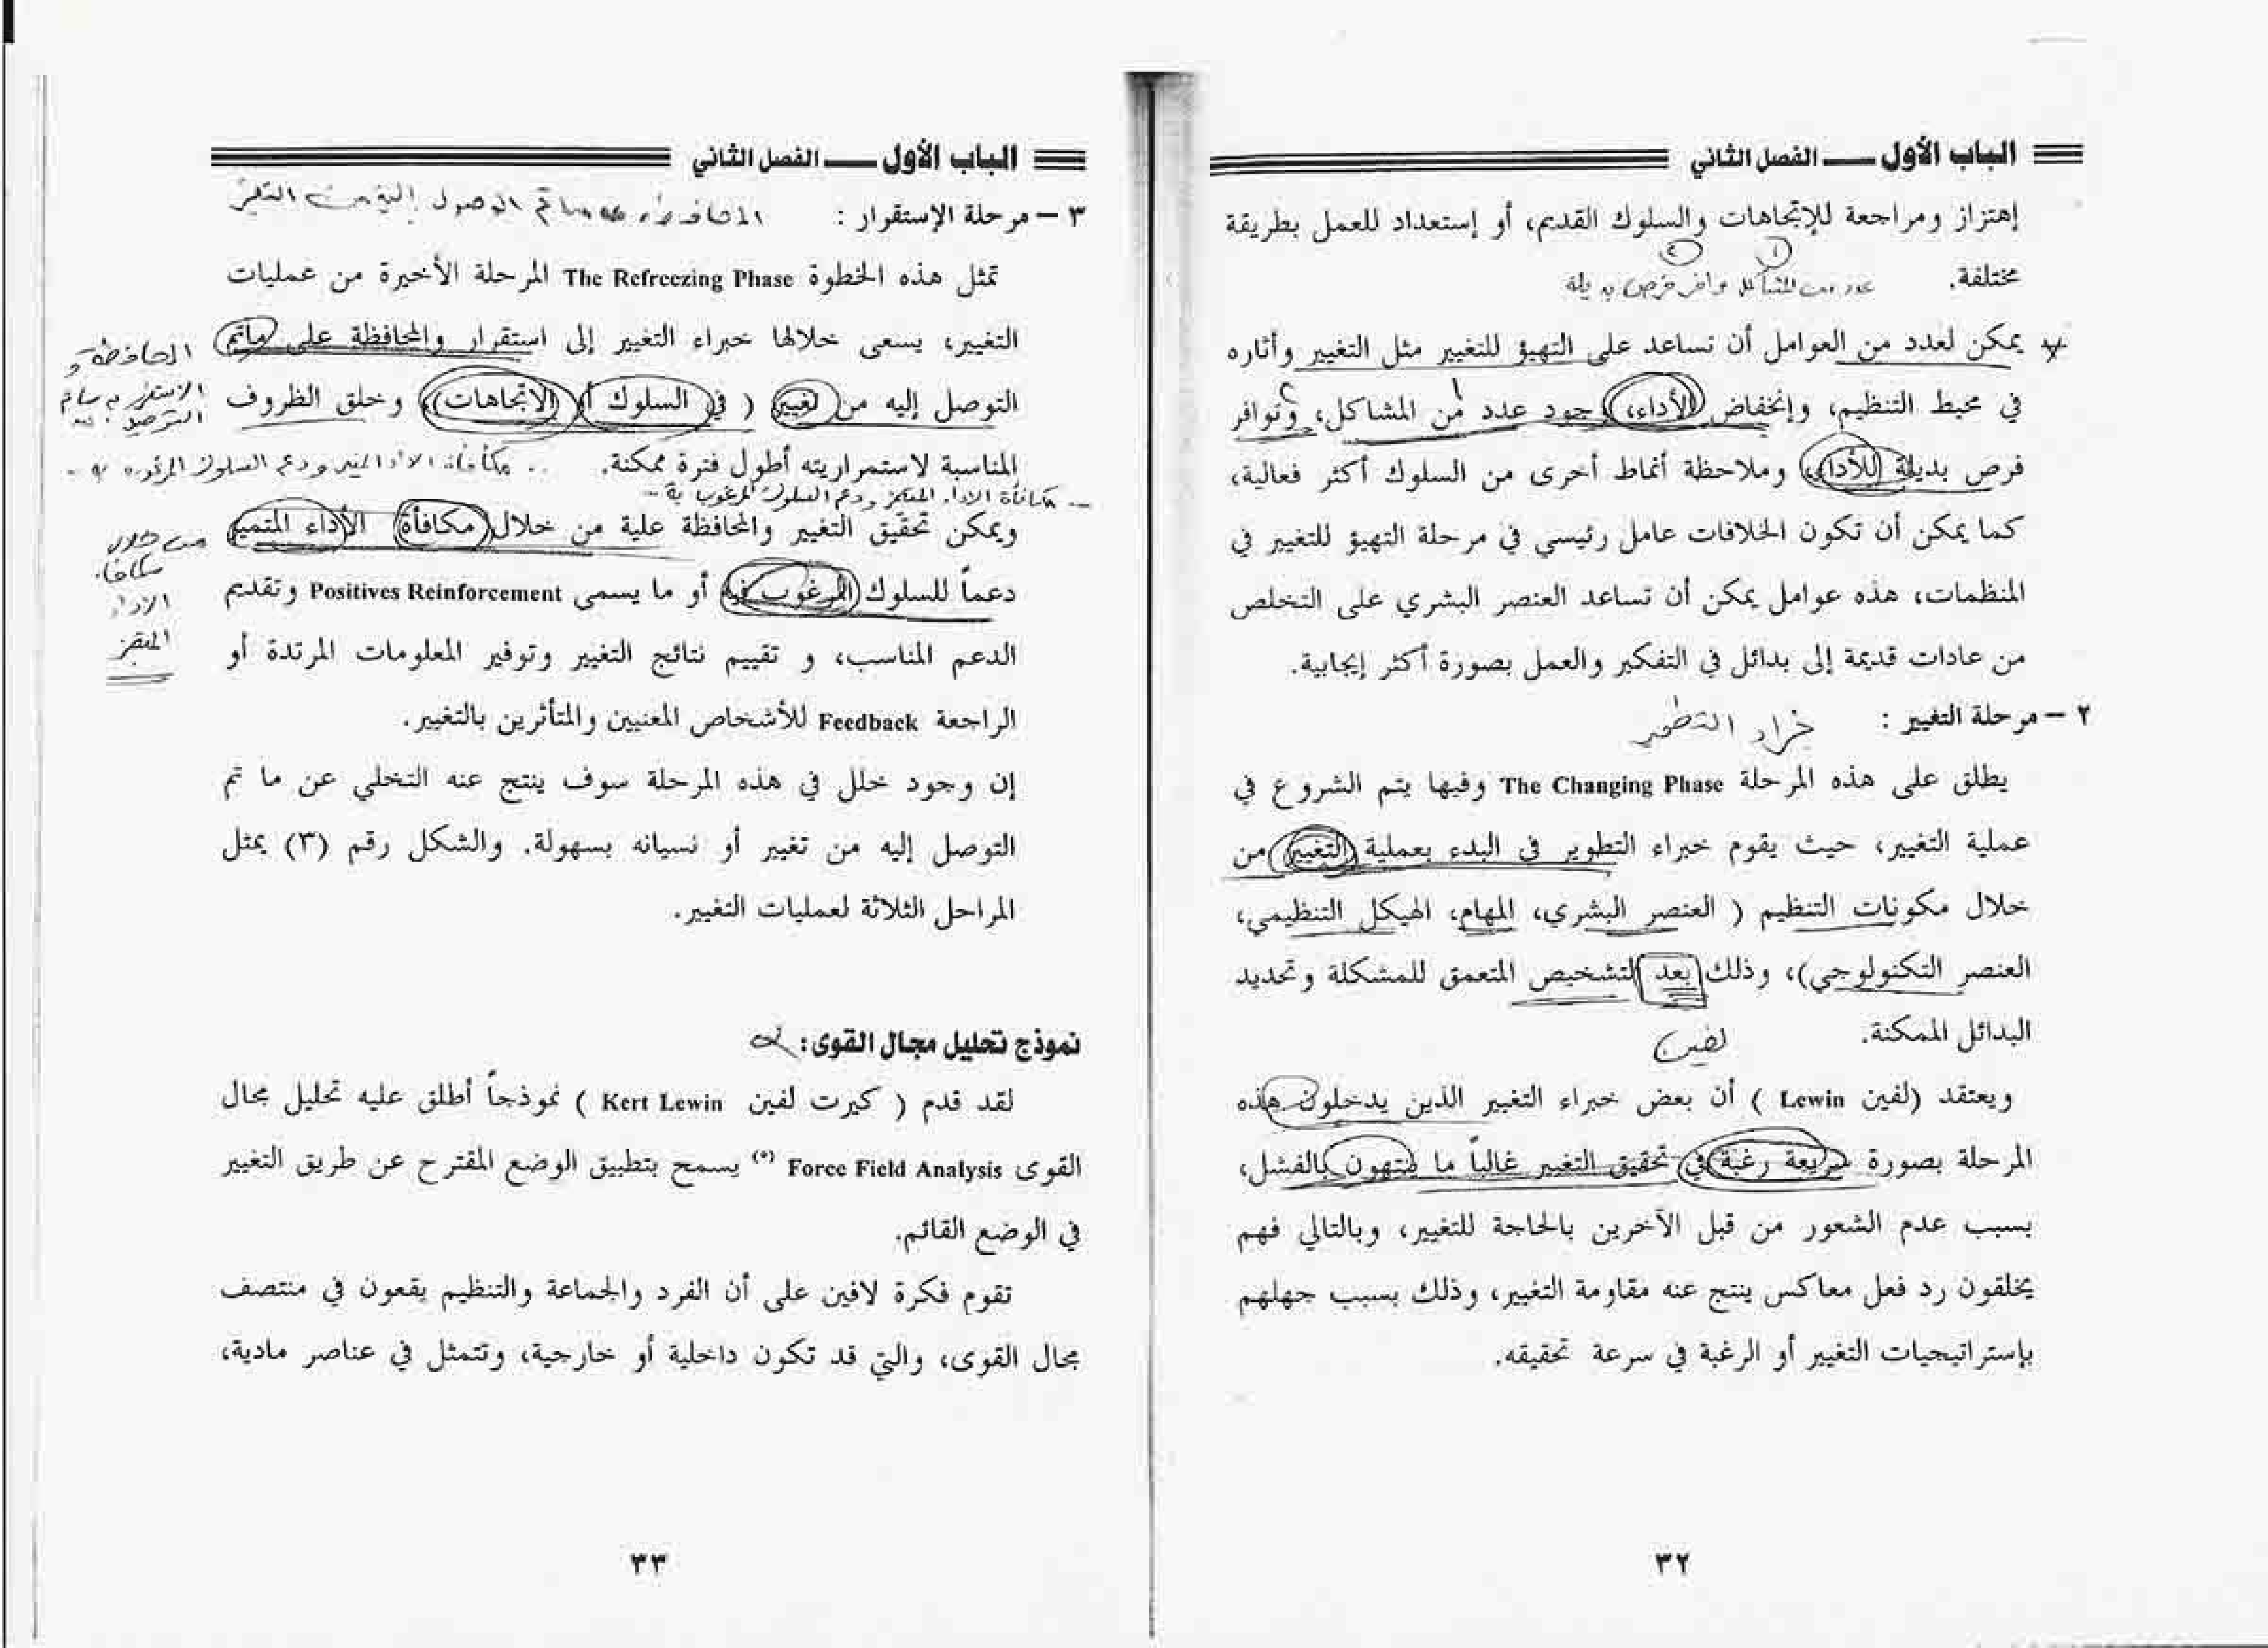 الباب الأول ــــ الفصل الثاني
إهتزاز ومراجعة للإتجاهات والسلوك القديم، أو إستعداد للعمل بطريقة
مختلفة.
عدد من المشاكل فرص بديلة
يمكن لعدد من العوامل أن تساعد على التهيؤ للتغيير مثل التغيير وأثاره
في محيط التنظيم، وإنخفاض الأداء، وجود عدد من المشاكل، وتوافر
فرص بديلة للأداء، وملاحظة أنماط أخرى من السلوك أكثر فعالية،
كما يمكن أن تكون الخلافات عامل رئيسي في مرحلة التهيؤ للتغيير في
المنظمات، هذه عوامل يمكن أن تساعد العنصر البشري على التخلص
من عادات قديمة إلى بدائل في التفكير والعمل بصورة أكثر إيجابية.
٢ – مرحلة التغيير :
يطلق على هذه المرحلة The Changing Phase وفيها يتم الشروع في
عملية التغيير، حيث يقوم خبراء التطوير في البدء بعملية التغيير من
خلال مكونات التنظيم ( العنصر البشري، المهام، الهيكل التنظيمي،
العنصر التكنولوجي)، وذلك بعد التشخيص المتعمق للمشكلة وتحديد
البدائل الممكنة.
لفين
ويعتقد (لفين Lewin ) أن بعض خبراء التغيير الذين يدخلون هذه
المرحلة بصورة سريعة رغبة في تحقيق التغيير غالباً ما ينتهون بالفشل،
بسبب عدم الشعور من قبل الآخرين بالحاجة للتغيير، وبالتالي فهم
يخلقون رد فعل معاكس ينتج عنه مقاومة التغيير، وذلك بسبب جهلهم
بإستراتيجيات التغيير أو الرغبة في سرعة تحقيقه.
٣٢
الباب الأول ــــ الفصل الثاني
٣ – مرحلة الإستقرار :
تم الوصول إليه من التغيير
تمثل هذه الخطوة The Refreezing Phase المرحلة الأخيرة من عمليات
التغيير، يسعى خلالها خبراء التغيير إلى استقرار والمحافظة على ماتم
التوصل إليه من تغيير ( في السلوك أو الاتجاهات)، وخلق الظروف
المناسبة لاستمراريته أطول فترة ممكنة.
مكافأة الاداء المتميز ودعم السلوك المرغوب به
ويمكن تحقيق التغيير والمحافظة علية من خلال مكافأة الأداء المتميز
دعماً للسلوك المرغوب فيه أو ما يسمى Positives Reinforcement وتقديم
الدعم المناسب، و تقييم نتائج التغيير وتوفير المعلومات المرتدة أو
الراجعة Feedback للأشخاص المعنيين والمتأثرين بالتغيير.
إن وجود خلل في هذه المرحلة سوف ينتج عنه التخلي عن ما تم
التوصل إليه من تغيير أو نسيانه بسهولة. والشكل رقم (٣) يمثل
المراحل الثلاثة لعمليات التغيير.
نموذج تحليل مجال القوى:
لقد قدم ( كيرت لفين Kert Lewin ) نموذجاً أطلق عليه تحليل مجال
القوى Force Field Analysis (*) يسمح بتطبيق الوضع المقترح عن طريق التغيير
في الوضع القائم.
تقوم فكرة لافين على أن الفرد والجماعة والتنظيم يقعون في منتصف
مجال القوى، والتي قد تكون داخلية أو خارجية، وتتمثل في عناصر مادية،
٣٣